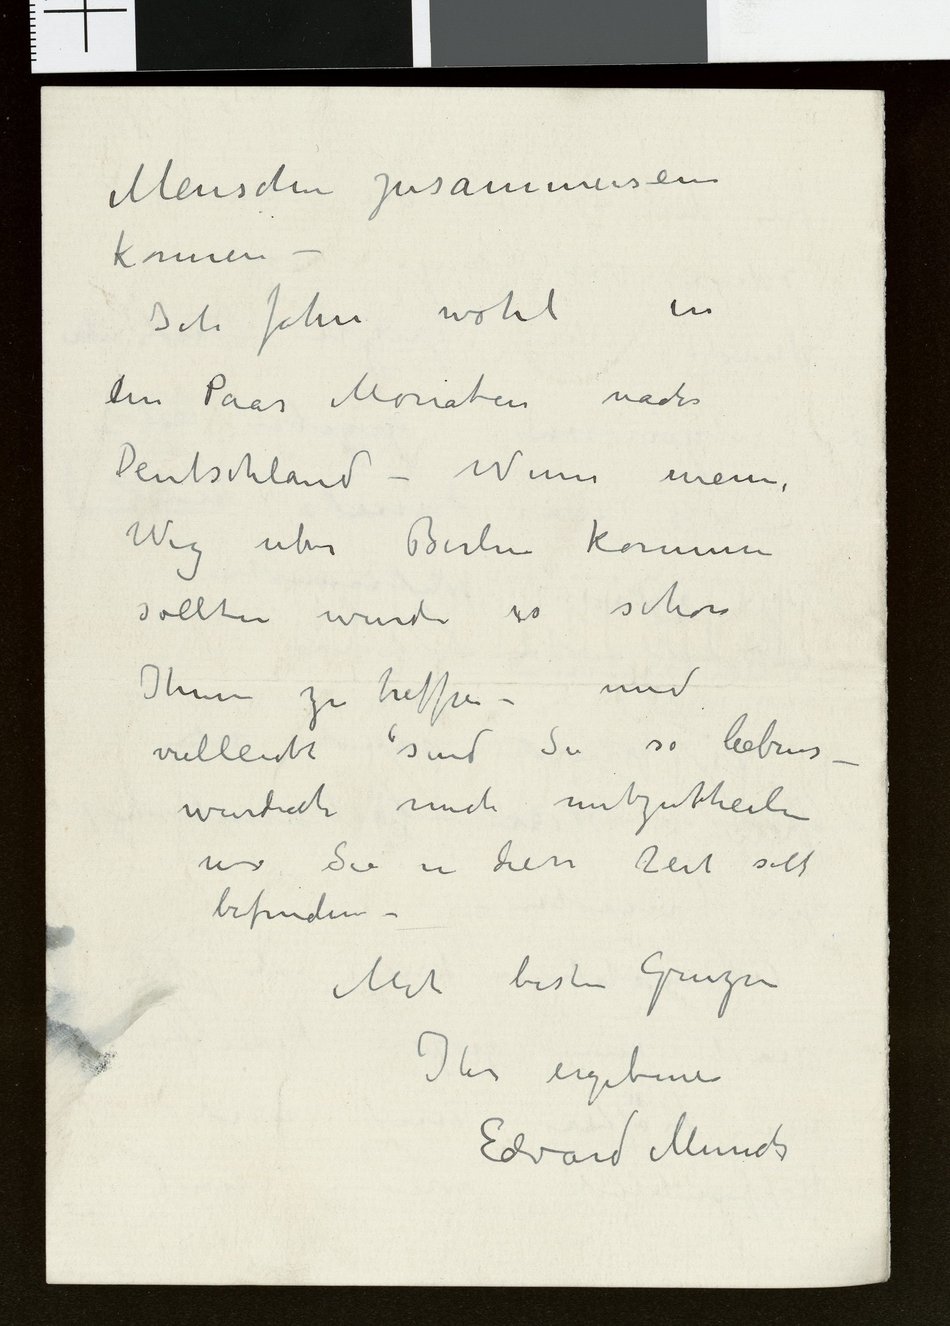 Menschen zusammensein
konnen –
Ich fahre wohl in
ein Paar Monaten nach
Deutschland – Wenn mein
Weg uber Berlin kommen
sollten wurde es schon
Ihnen zu treffen – und
vielleicht sind Sie so liebens_
wurdich mich mitzutheilen
wo Sie in diese Zeit sich
befinden –
Mit besten Gruzen
Ihr ergebener
Edvard Munch